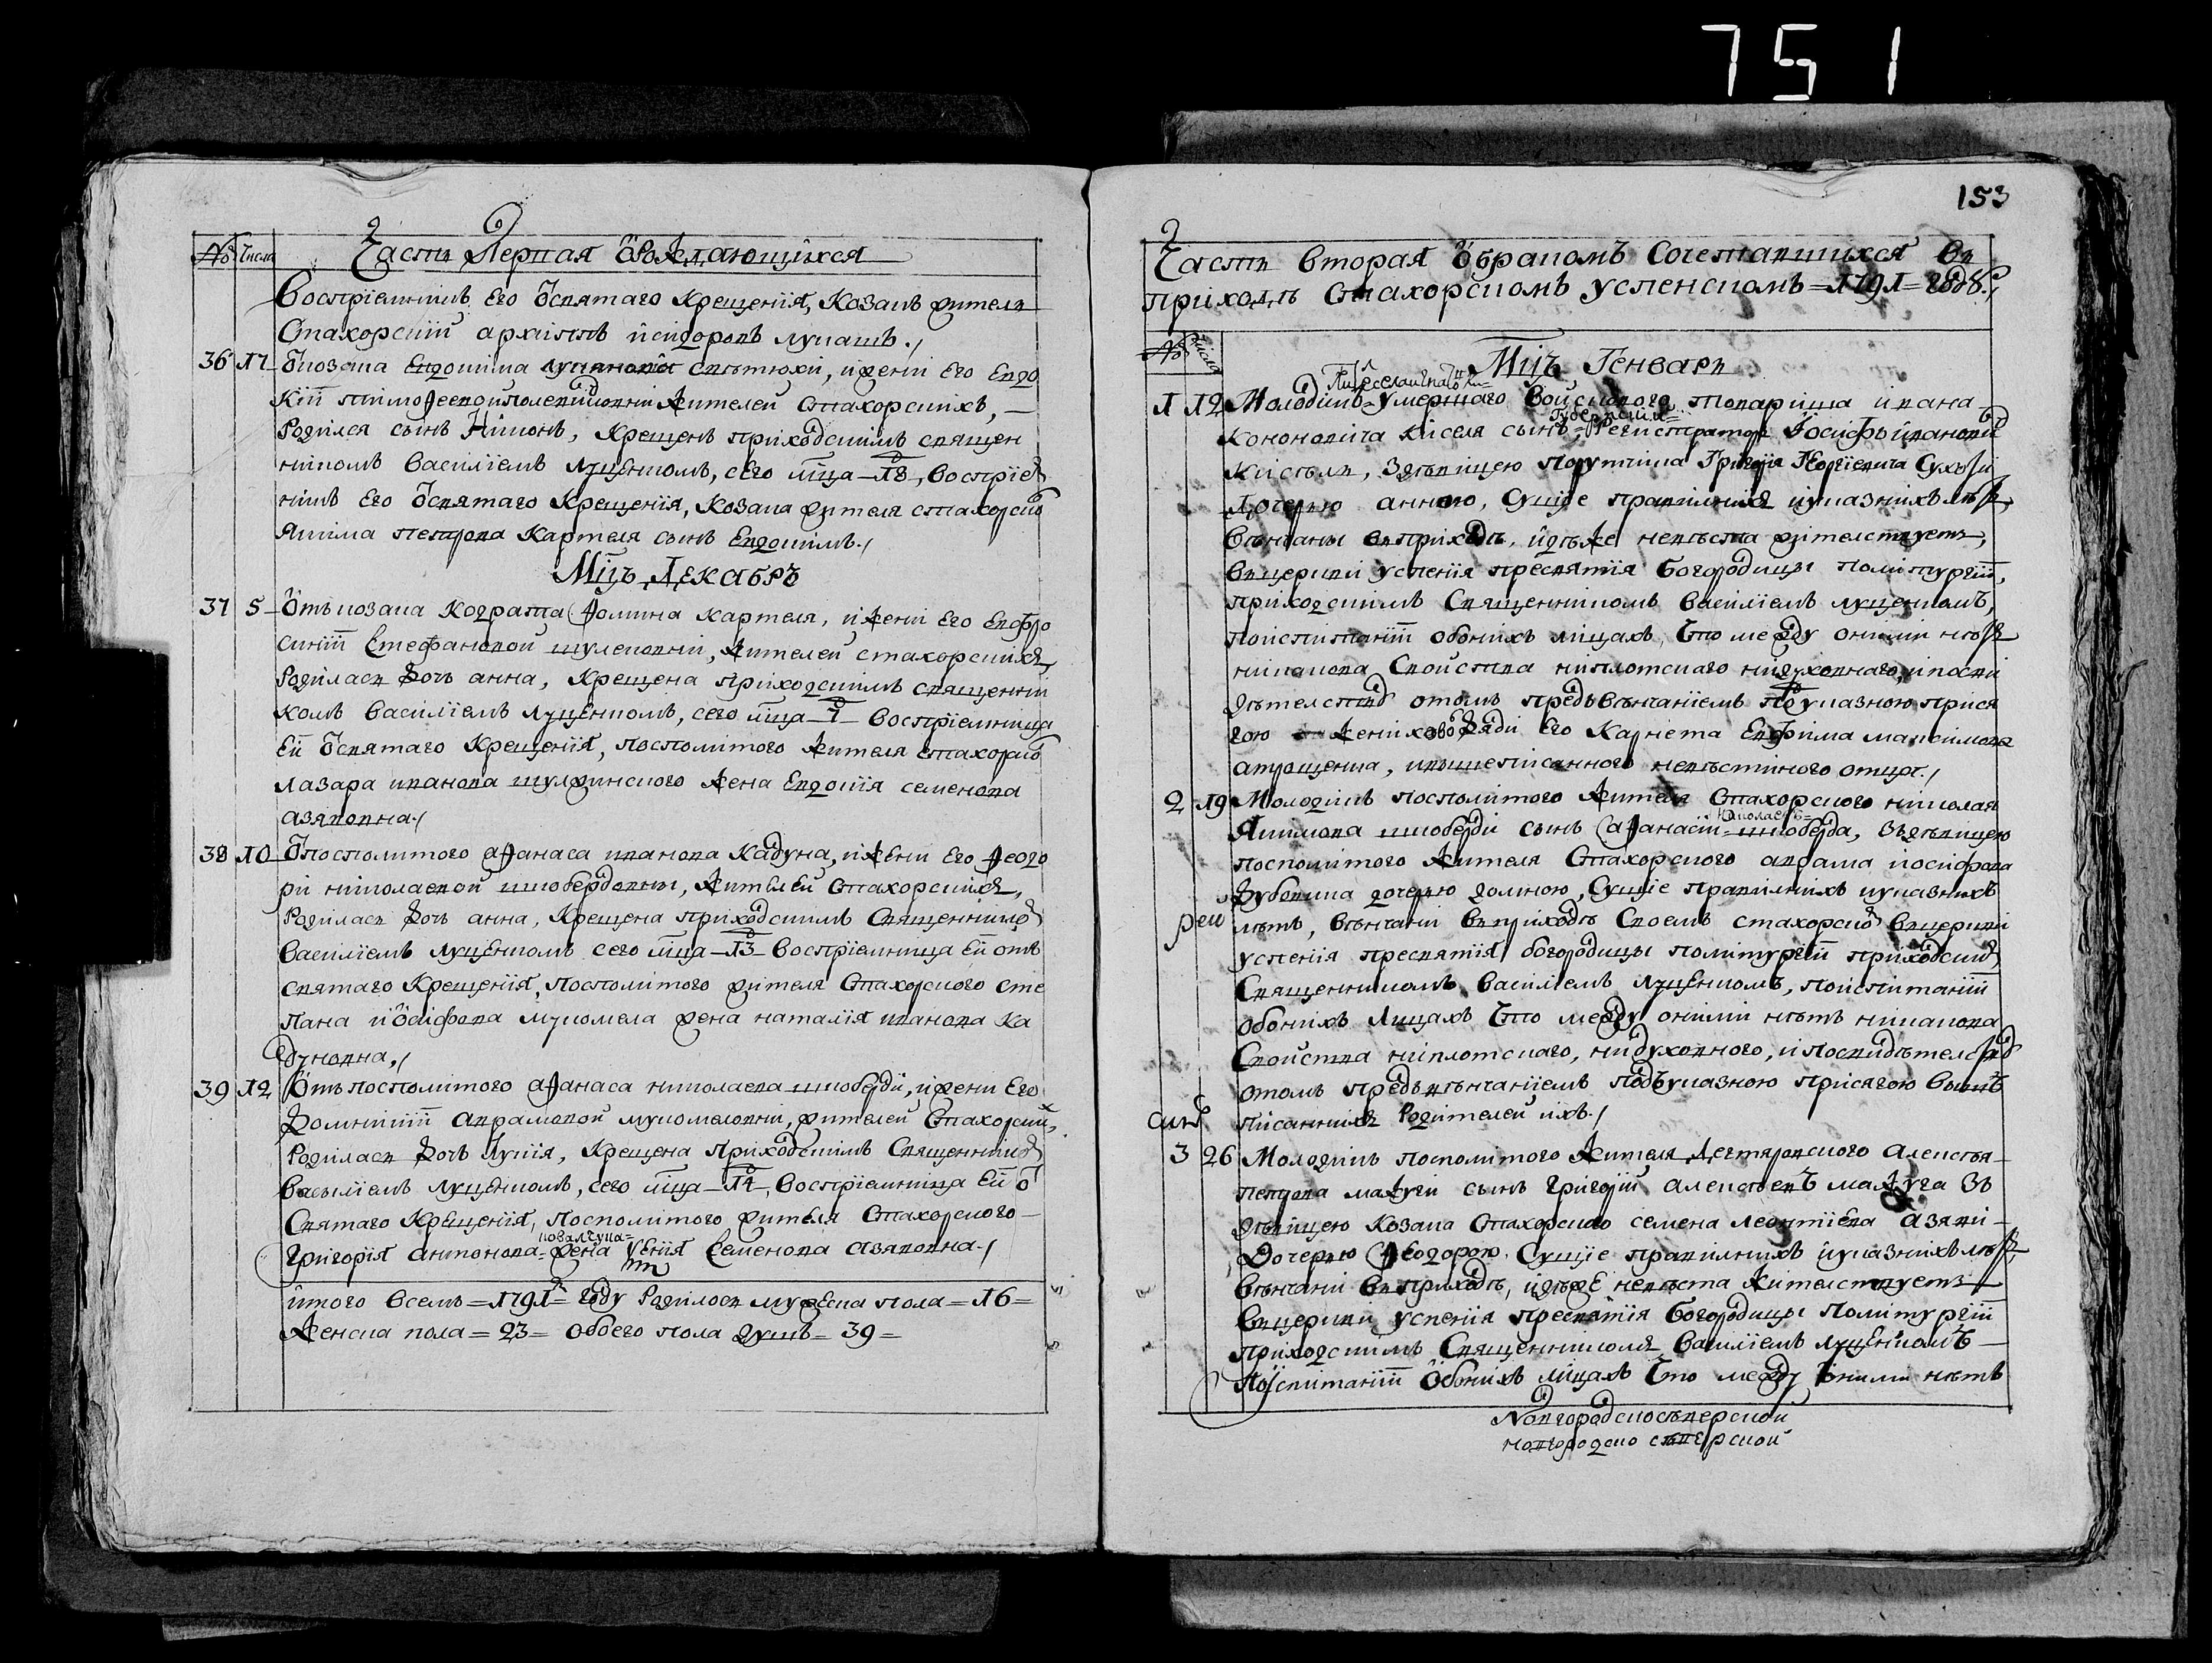 751
№ Числа Часть Первая ѽ Рождающихся
Воспріемникъ его ѿ святаго крещенія, козакъ житель
Стахорскій архіппъ ісидоровъ лукашъ./
36 17 ѿ козака Евдокима лукянова свѣтюхи, и жени его Евдо
кіи тимофеевой полевиковни жителей стахорскихъ, —
родился сынъ Никонъ, крещенъ приходскимъ священ
никомъ василіемъ луценкомъ, сего мца 18, воспріем
никъ его ѿ святаго крещенія, козака жителя стахорско
якима петрова картеля сынъ Евдокимъ./
Мцъ Декабръ
37 5 Отъ козака кодрата фомина картеля, и жени его евфро
синіи Стефановой шулековни, жителей стахорскихъ,
родилась дочъ анна, крещена приходскимъ священни
комъ василіемъ луценкомъ, сего мца 7 воспріемница
ей ѿ святаго крещенія, посполитого жителя стахорско
лазара иванова шулжинского жена Евдокія семенова
азяровна./
38 10 ѿ посполитого афанаса иванова кадуна, и жени его феодо
ри николаевой шкобердовны, жителей стахорскихъ,
родилась дочъ анна, крещена приходскимъ священнико
василіемъ луценкомъ сего мца 13 воспріемница ей отъ
святаго крещенія, посполитого жителя стахорского сте
пана иѡсифова мукомела жена наталія иванова ка
дуновна./
39 12 Отъ посполитого афанаса николаева шкоберди, и жени его
домникіи аврамовой мукомеловни, жителей стахорских,
родилась дочъ лукія, крещена приходскимъ священнико
василіемъ луценкомъ, сего мца 14, воспріемница ей ѿ
святаго крещенія, посполитого жителя стахорского —
ковалчука
григорія антонова жена ксенія семенова азяровна./
итого всемъ 1791 году родилось мужеска пола 16
женска пола 23 обоего пола душъ 39
153
Часть вторая ѽ бракомъ сочетавшихся въ
приходѣ стахорскомъ успенскомъ 1791 году./
№ числа
Мцъ Генваръ
1 12 Молодикъ умершаго войскового товариша ивана
губернскій
кононовича киселя сынъ, регистраторъ іосифъ иванови
кисѣль, з дѣвицею поручика григорія георгіевича сухо
дочерю анною, сущіе правилнихъ и указнихъ лѣт,
вѣнчаны въ приходѣ, идѣже невѣста жителствуетъ,
въ церкви успенія пресвятія богородицы по литургіи,
приходскимъ священникомъ василіемъ луценкомъ,
по испитаніи обоихъ лицахъ, что между оними нѣт
никакова свойства ни плотскаго ни духовнаго, и по сви
дѣтелству отомъ предъ вѣнчаніемъ под указною прися
гою жениховою дяди его корнета евфима максимова
атрощенка, и вишеписанного невѣстиного отца./
2 19 Молодикъ посполитого жителя стахорского николая
николаевъ
якимова шкоберди сынъ афанасій шкоберда, зъ дѣвицею
посполитого жителя стахорского аврама иосифова
дубовика дочерю домною, сущіе правилнихъ и указнихъ
рей лѣтъ, вѣнчани въ приходѣ своемъ стахорско въ церкви
успенія пресвятія богородицы по литургіи приходским
священникомъ василіемъ луценкомъ, по испитаніи
обоихъ лицахъ что между оними нѣтъ никакова
свойства ни плотскаго, ни духовного, и по свидѣтелству
отомъ предъ вѣнчаніемъ подъ указною присягою више
писаннихъ родителей ихъ./
3 26 Молодикъ посполитого жителя дегтяревского алексѣя
петрова мажуги сынъ григорій алексѣевъ мажуга зъ
дѣвицею козака стахорского семена леонтіева азяри
дочерю феодорою, сущіе правилнихъ и указнихъ лѣт,
вѣнчани въ приходѣ, идѣже невѣста жителствуетъ
въ церкви успенія пресвятія богородицы по литургіи
приходскимъ священникомъ василіемъ луценкомъ —
по испитаніи обоихъ лицахъ что между оними нѣтъ
Новгородскосѣверской
новгородско сѣверской